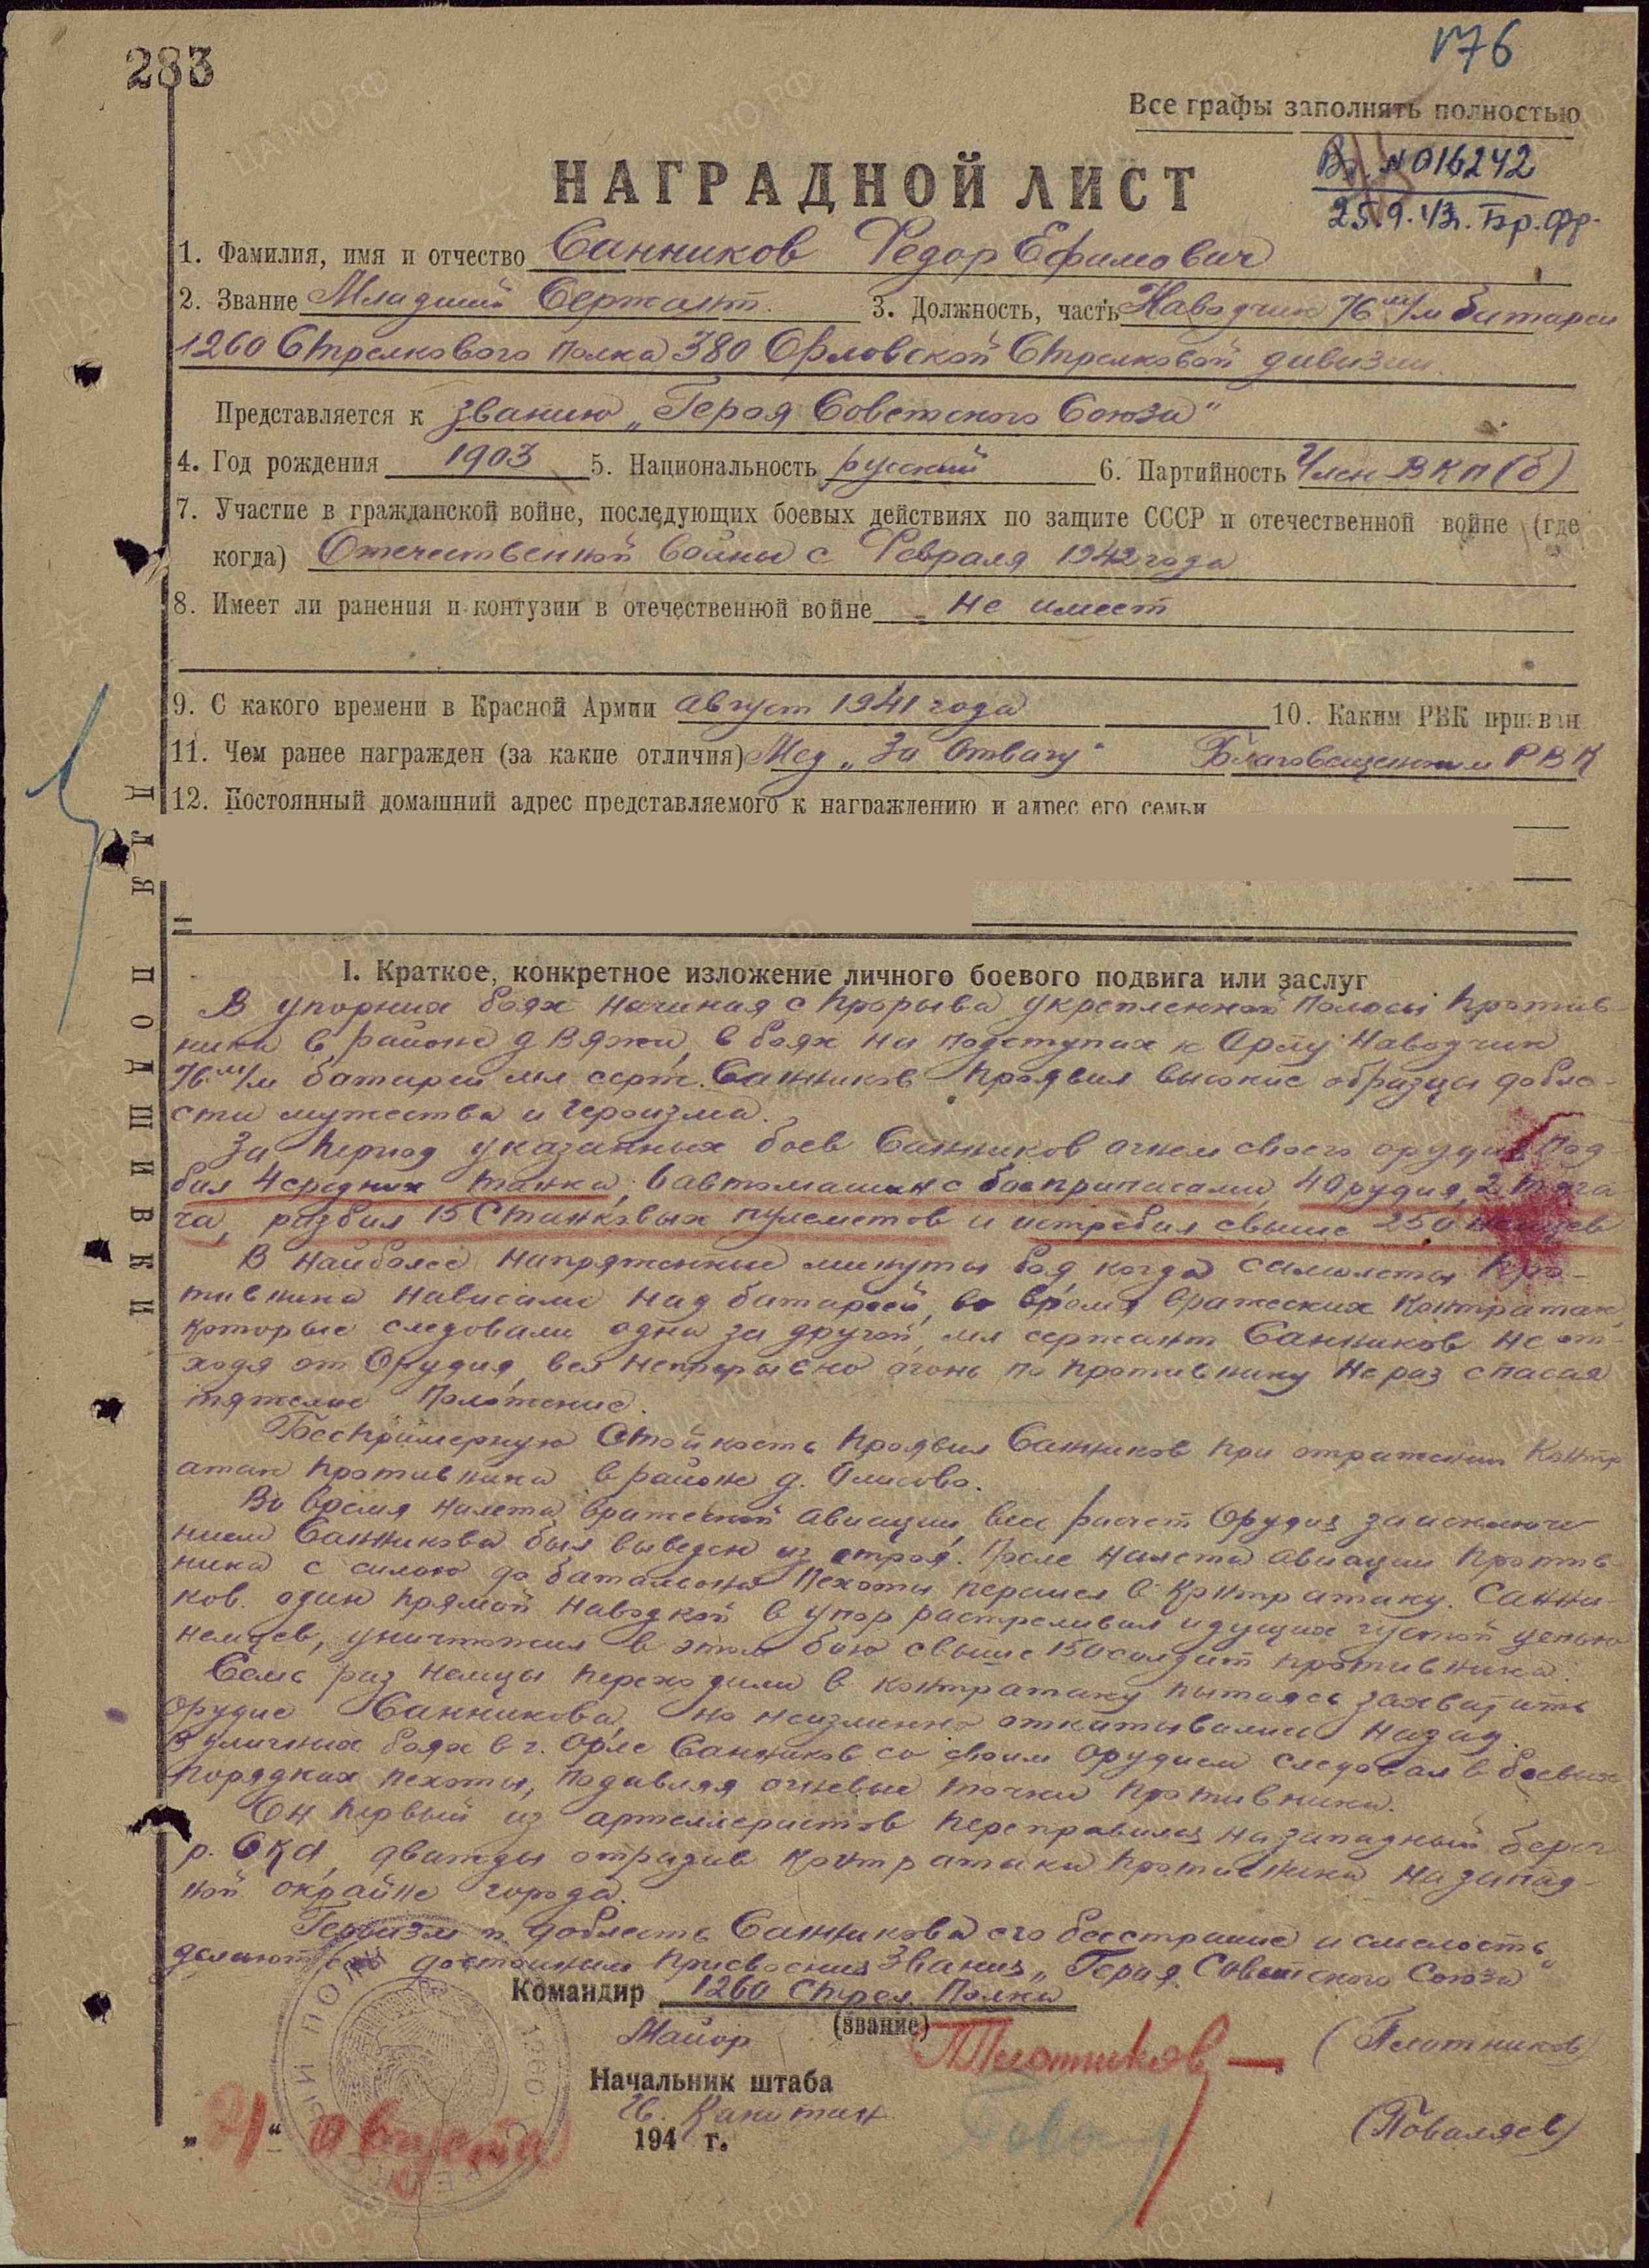 283
176
Все графы заполнять полностью
Вх. №016242
25.9.43г. Бр.фр.
НАГРАДНОЙ ЛИСТ
1. Фамилия, имя и отчество Санников Федор Ефимович
2. Звание Младший Сержант. 3. Должность, часть Наводчик 76 м/м батареи
1260 Стрелкового полка 380 Орловской Стрелковой дивизии.
Представляется к званию „Героя Советского Союза"
4. Год рождения 1903 5. Национальность русский 6. Партийность Член ВКП(б)
7. Участие в гражданской войне, последующих боевых действиях по защите СССР и отечественной войне (где
когда) Отечественной войны с Февраля 1942 года
8. Имеет ли ранения и контузии в отечественной войне не имеет
9. С какого времени в Красной Армии август 1941 года 10. Каким РВК призван
11. Чем ранее награжден (за какие отличия) Мед „За Отвагу" Благовещенским РВК
12. Постоянный домашний адрес представляемого к награждению и адрес его семьи
ДЛЯ ПОДШИВКИ
I. Краткое, конкретное изложение личного боевого подвига или заслуг
В упорных боях начиная с прорыва укрепленной полосы против-
ника в районе д Вяжи, в боях на подступах к Орлу Наводчик
76 м/м батареи мл серж. Санников проявил высокие образцы добле-
сти мужества и героизма.
За период указанных боев Санников огнем своего орудия под-
бил 4 средних танка, 6 автомашин с боеприпасами, 4 орудия, 2 тяга
ча, разбил 15 Станковых пулеметов и истребил свыше 250 немцев
В наиболее напряженные минуты боя, когда самолеты про-
тивника нависали над батареей, во время вражеских контратак,
которые следовали одна за другой, мл сержант Санников не от-
ходя от Орудия, вел непрерывно огонь по противнику не раз спасая
тяжелое положение.
Беспримерную Стойкость проявил Санников при отражении Контр
атак противника в районе д.
Во время налета вражеской авиации, весь расчет Орудия за исключе
нием Санникова был выведен из строя. После налета авиации против-
ника с силою до батальона пехоты перешел в Контратаку. Санни-
ков. один прямой наводкой в упор расстреливал идущих густой цепью
немцев, уничтожил в этом бою свыше 150 солдат противника.
Семь раз немцы переходили в контратаку пытаясь захватить
Орудие Санникова, но неизменно откатывались назад.
В уличных боях в г. Орле Санников со своим Орудием следовал в боевых
порядках пехоты, подавляя огневые точки противника.
Он первый из артиллеристов переправился на западный берег
р. Ока, дважды отразив контратаки противника на запад-
ной окрайне города.
Героизм и доблесть Санникова его бесстрашие и смелость
делают его достойным присвоения Звания „Героя Советского Союза"
Командир 1260 Стрел. Полка
(звание)
Майор Плотников (Плотников)
Начальник штаба
Гв. Капитан (Поваляев)
„21" августа 194 г.
1260